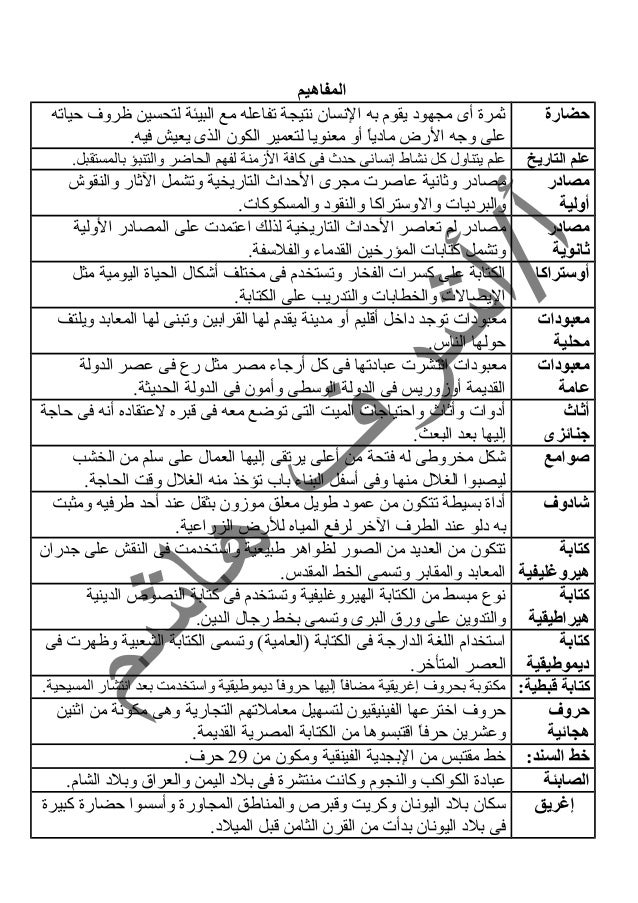 المفاهيم
حضارة ثمرة أى مجهود يقوم به الإنسان نتيجة تفاعله مع البيئة لتحسين ظروف حياته
على وجه الأرض مادياً أو معنويا لتعمير الكون الذى يعيش فيه.
علم التاريخ علم يتناول كل نشاط إنسانى حدث فى كافة الأزمنة لفهم الحاضر والتنبؤ بالمستقبل.
مصادر مصادر وثانية عاصرت مجرى الأحداث التاريخية وتشمل الآثار والنقوش
أولية والبرديات والاوستراكا والنقود والمسكوكات.
مصادر مصادر لم تعاصر الأحداث التاريخية لذلك اعتمدت على المصادر الأولية
ثانوية وتشمل كتابات المؤرخين القدماء والفلاسفة.
أوستراكا الكتابة على كسرات الفخار وتستخدم فى مختلف أشكال الحياة اليومية مثل
الإيصالات والخطابات والتدريب على الكتابة.
معبودات معبودات توجد داخل أقليم أو مدينة يقدم لها القرابين وتبنى لها المعابد ويلتف
محلية حولها الناس.
معبودات معبودات انتشرت عبادتها فى كل أرجاء مصر مثل رع فى عصر الدولة
عامة القديمة أوزوريس فى الدولة الوسطى وأمون فى الدولة الحديثة.
أثاث أدوات وأثاث واحتياجات الميت التى توضع معه فى قبره لاعتقاده أنه فى حاجة
جنائزى إليها بعد البعث.
صوامع شكل مخروطى له فتحة من أعلى يرتقى إليها العمال على سلم من الخشب
ليصبوا الغلال منها وفى أسفل البناء باب تؤخذ منه الغلال وقت الحاجة.
شادوف أداة بسيطة تتكون من عمود طويل معلق موزون بثقل عند أحد طرفيه ومثبت
به دلو عند الطرف الآخر لرفع المياه للأرض الزراعية.
كتابة تتكون من العديد من الصور لظواهر طبيعية واستخدمت فى النقش على جدران
هيروغليفية المعابد والمقابر وتسمى الخط المقدس.
كتابة نوع مبسط من الكتابة الهيروغليفية وتستخدم فى كتابة النصوص الدينية
هيراطيقية والتدوين على ورق البرى وتسمى بخط رجال الدين.
كتابة استخدام اللغة الدارجة فى الكتابة (العامية) وتسمى الكتابة الشعبية وظهرت فى
ديموطيقية العصر المتأخر.
كتابة قبطية: مكتوبة بحروف إغريقية مضافاً إليها حروفاً ديموطيقية واستخدمت بعد انتشار المسيحية.
حروف حروف اخترعها الفينيقيون لتسهيل معاملاتهم التجارية وهى مكونة من اثنين
هجائية وعشرين حرفاً اقتبسوها من الكتابة المصرية القديمة.
خط السند: خط مقتبس من الإبجدية الفينقية ومكون من 29 حرف.
الصابئة عبادة الكواكب والنجوم وكانت منتشرة فى بلاد اليمن والعراق وبلاد الشام.
إغريق سكان بلاد اليونان وكريت وقبرص والمناطق المجاورة وأسسوا حضارة كبيرة
فى بلاد اليونان بدأت من القرن الثامن قبل الميلاد.
أ/أشرف هاشم